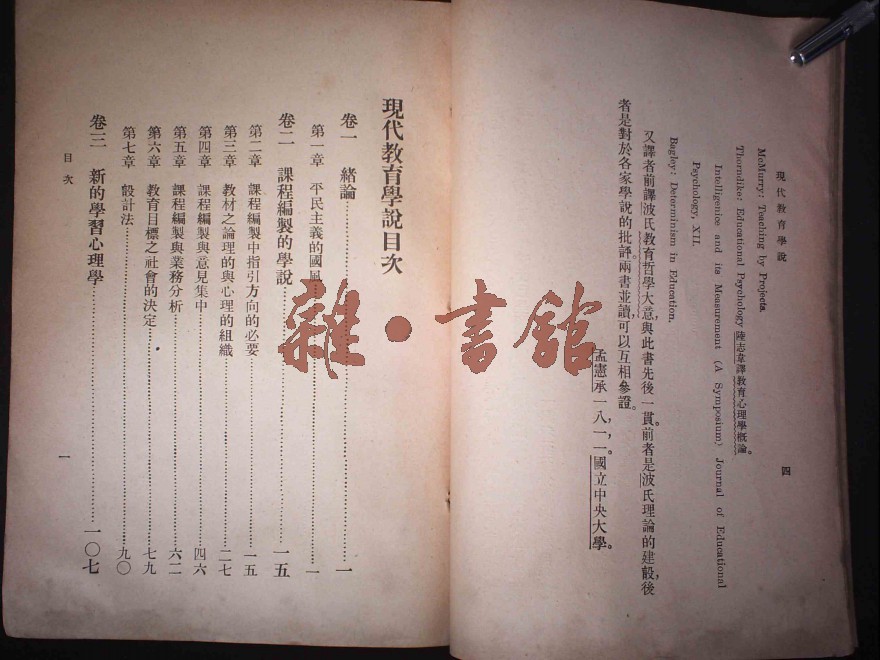 現代教育學說
四
McMurry: Teaching by Projects.
Thorndike: Educational Psychology 陸志韋譯教育心理學概論。
Intelligence and its Measurement (A Symposium) Journal of Educational
Psychology, XII.
Bagley: Determinism in Education.
又譯者前譯波氏教育哲學大意與此書先後一貫。前者是波氏理論的建設，後
者是對於各家學說的批評。兩書並讀，可以互相參證。
孟憲承一八，一，一。國立中央大學。
現代教育學說目次
卷一 緒論 一
第一章 平民主義的國風 一
卷二 課程編製的學說 一五
第二章 課程編製中指引方向的必要 一五
第三章 教材之論理的與心理的組織 二七
第四章 課程編製與意見集中 四六
第五章 課程編製與業務分析 六二
第六章 教育目標之社會的決定 七九
第七章 設計法 九〇
卷三 新的學習心理學 一〇七
目次
一
雜·書館